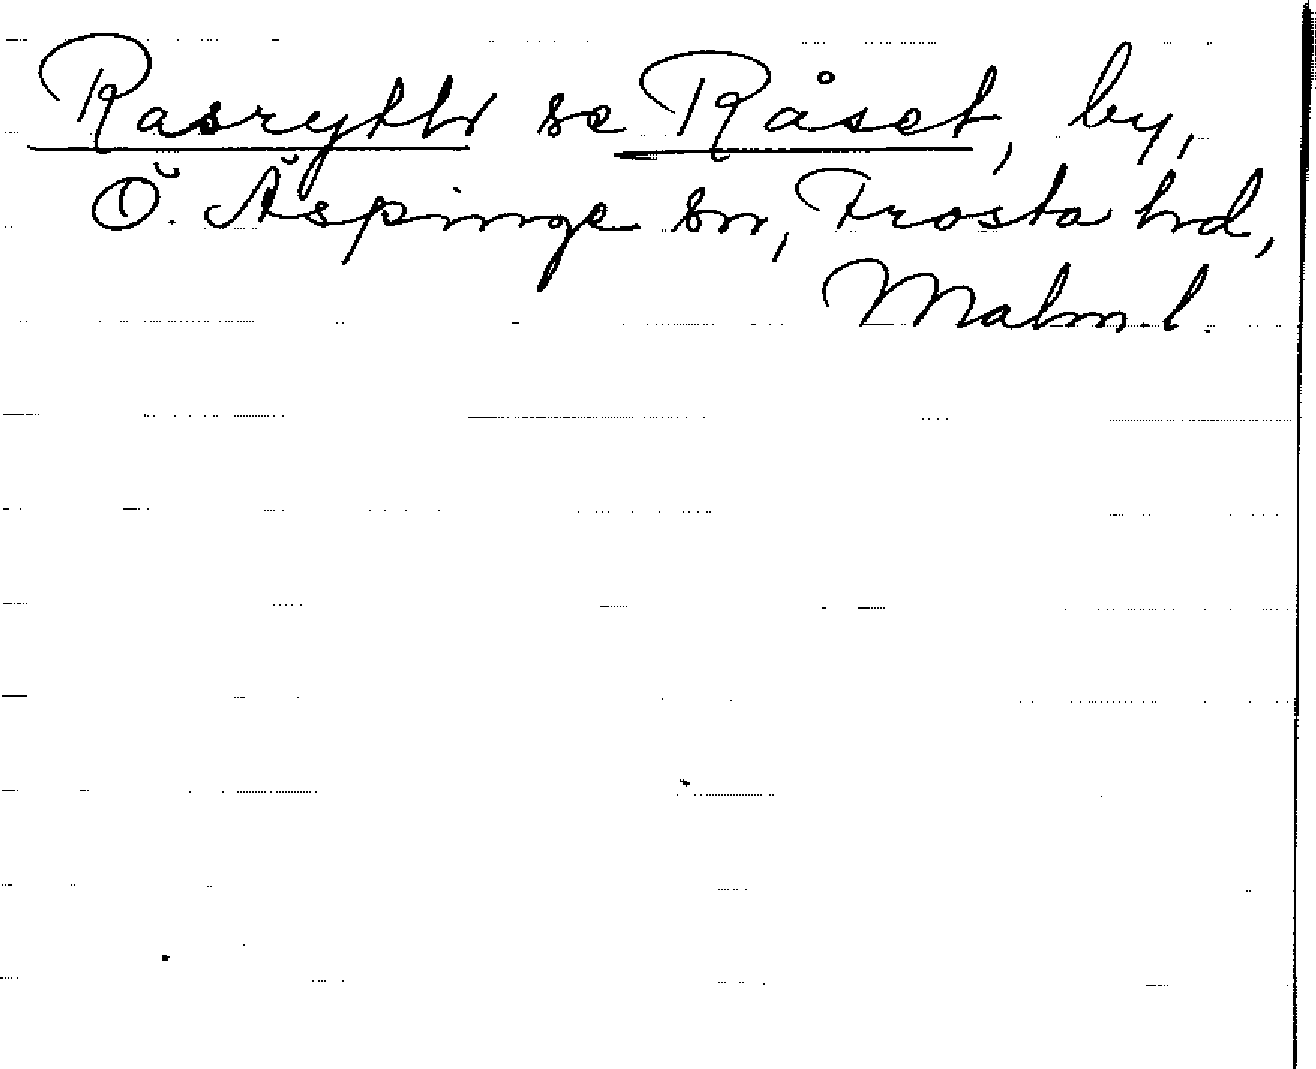 se Råset, by,
Ö. Äspinge sn, Frosta hd,
Malm. l.